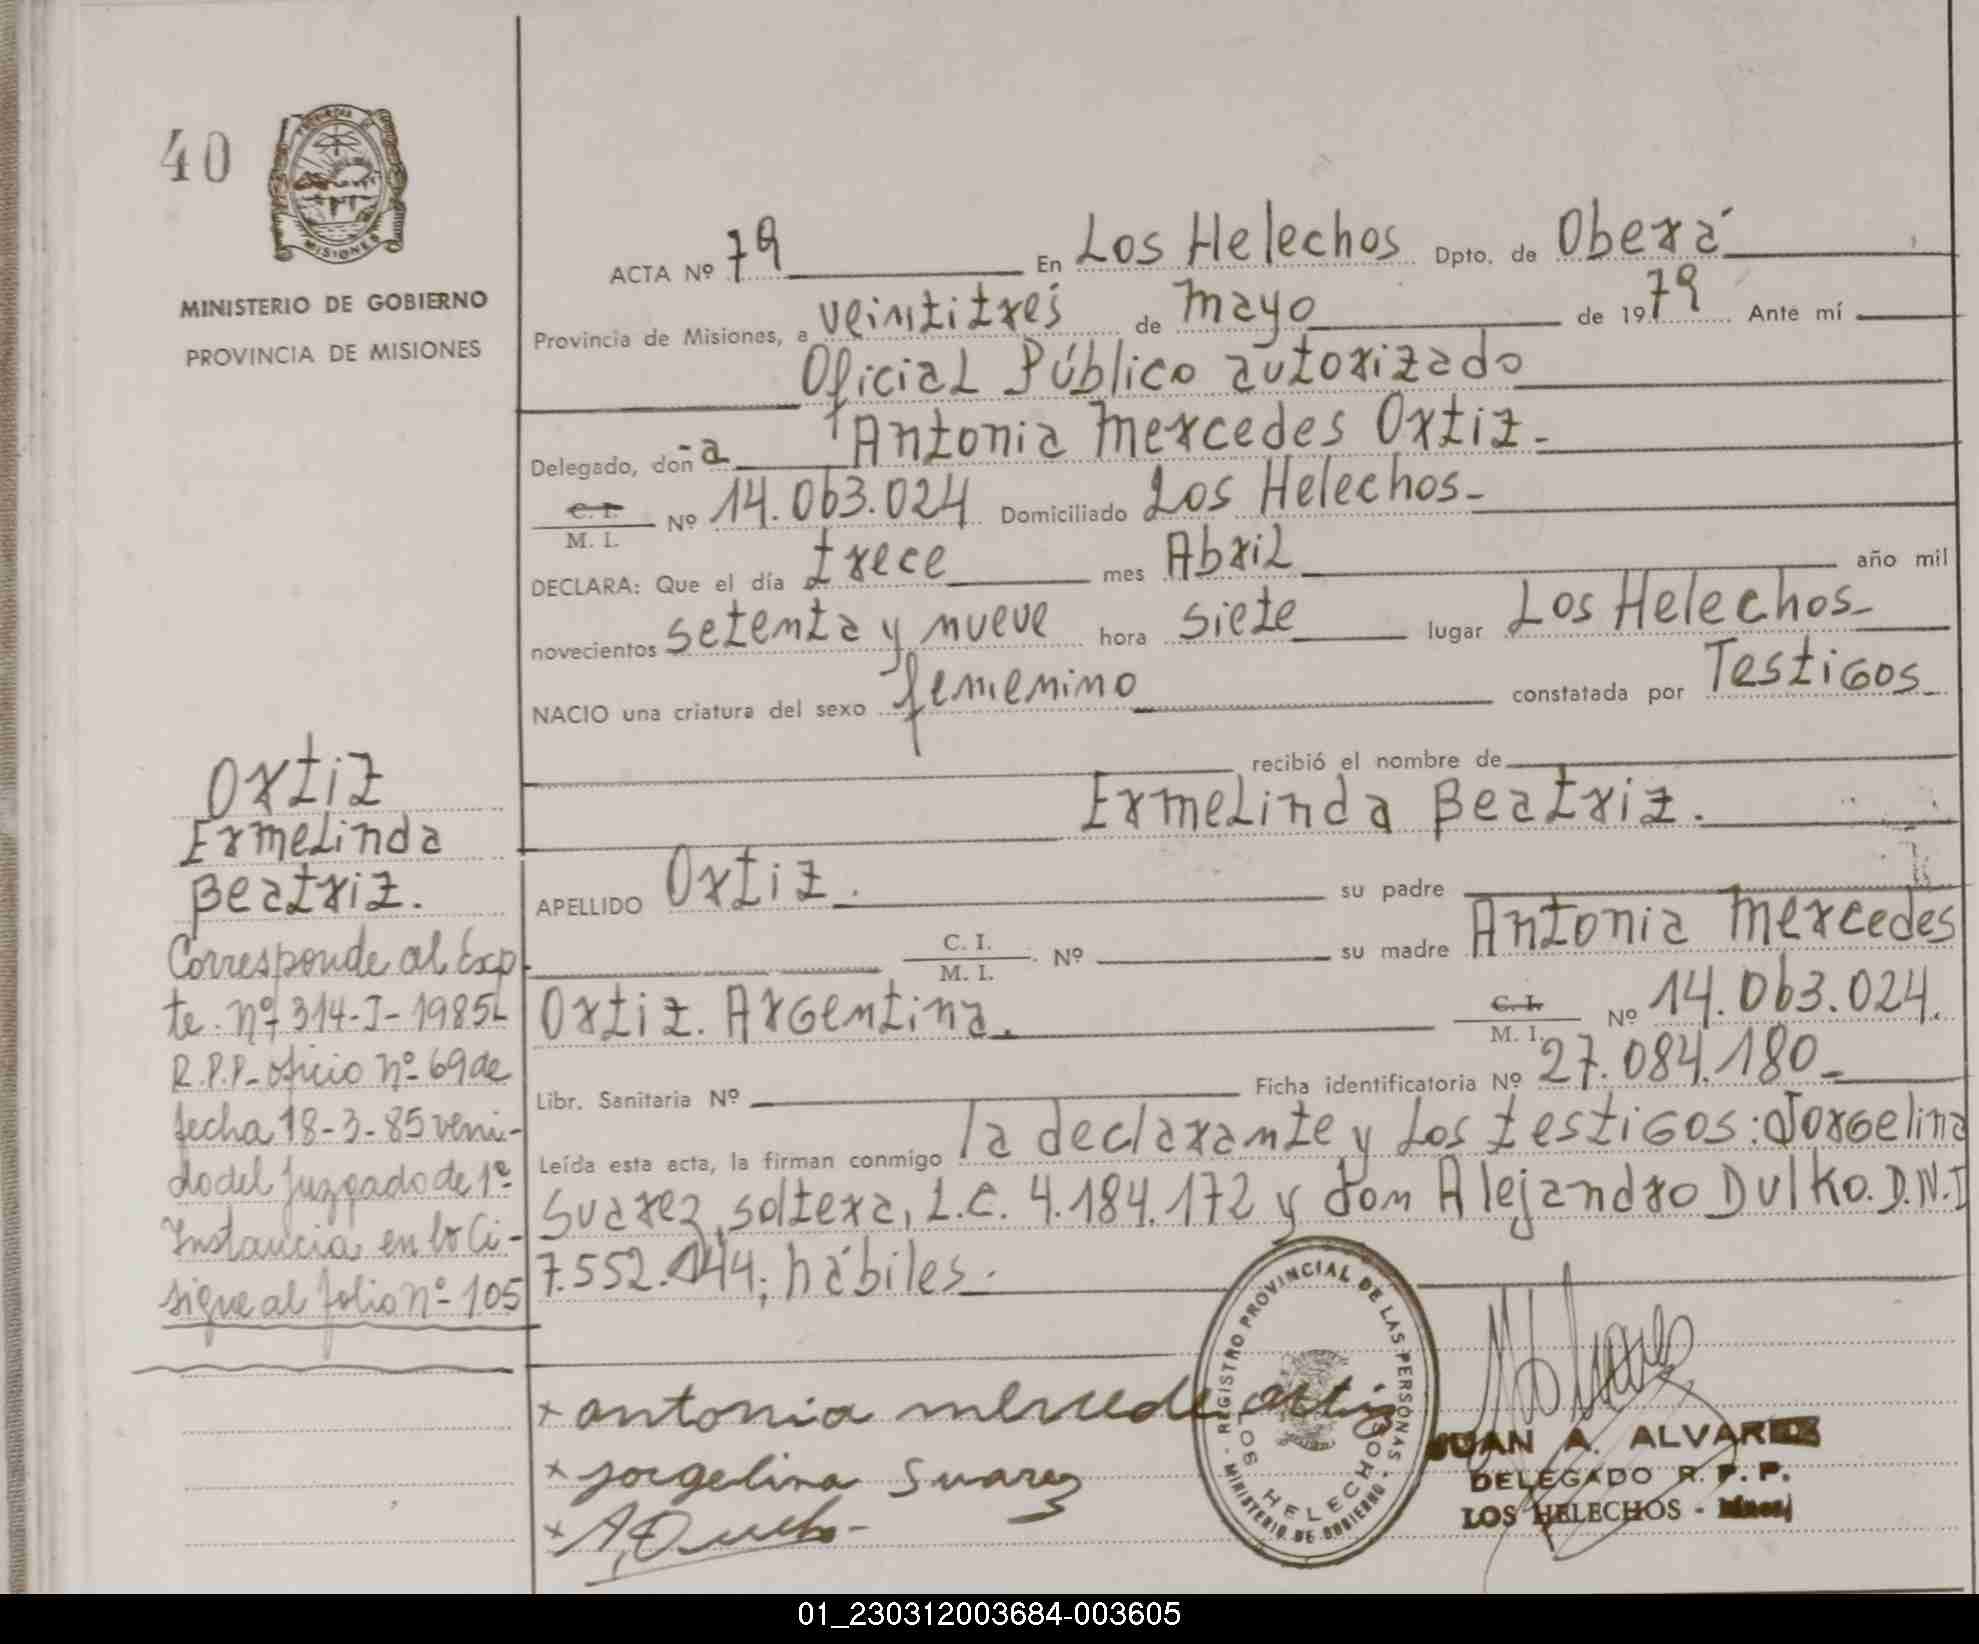 40
PROVINCIA DE
MISIONES
MINISTERIO DE GOBIERNO
PROVINCIA DE MISIONES
ACTA Nº 79 En Los Helechos Dpto. de Oberá
Provincia de Misiones, a veintitrés de mayo de 1979 Ante mí
Oficial Público autorizado
Delegado, doña Antonia Mercedes Ortiz.-
C. I. / M. I. Nº 14.063.024 Domiciliado Los Helechos-
DECLARA: Que el día trece mes Abril año mil
novecientos setenta y nueve hora siete lugar Los Helechos-
NACIO una criatura del sexo femenino constatada por Testigos
recibió el nombre de
Ermelinda Beatriz.
APELLIDO Ortiz. su padre
C. I. / M. I. Nº su madre Antonia Mercedes
Ortiz. Argentina. C. I. / M. I. Nº 14.063.024.
Libr. Sanitaria Nº Ficha identificatoria Nº 27.084.180-
Leída esta acta, la firman conmigo la declarante y los testigos: Jorgelina
Suarez, soltera, L.C. 4.184.172 y don Alejandro Dulko. D.N.I
7.552.144; hábiles.-
Ortiz
Ermelinda
Beatriz.
Corresponde al Exp
te. nº 314-I-1985-
R.P.P- oficio nº 69 de
fecha 18-3-85 veni-
do del Juzgado de 1º
Instancia en lo Ci-
sigue al folio nº 105
x antonia mercede ortiz
x jorgelina Suarez
x
REGISTRO PROVINCIAL DE LAS PERSONAS
- MINISTERIO DE GOBIERNO -
LOS HELECHOS
JUAN A. ALVAREZ
DELEGADO R. P. P.
LOS HELECHOS -
01_230312003684-003605